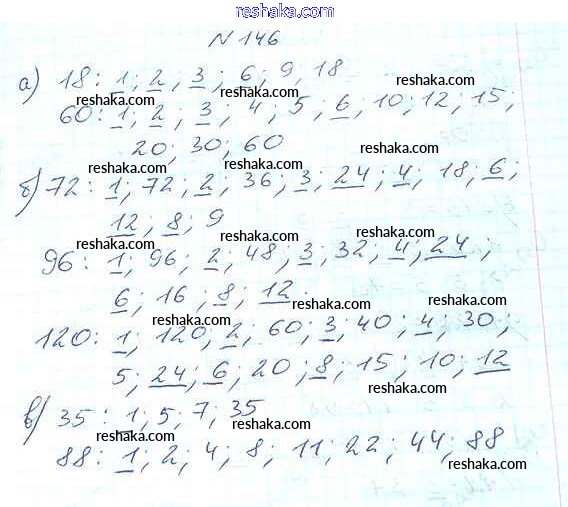 reshaka.com
N 146
а) 18: 1; 2; 3; 6; 9; 18
reshaka.com reshaka.com
60: 1; 2; 3; 4; 5; 6; 10; 12; 15;
reshaka.com reshaka.com
20; 30; 60
reshaka.com reshaka.com
б) 72: 1; 72; 2; 36; 3; 24; 4; 18; 6;
reshaka.com
12; 8; 9
reshaka.com
96: 1; 96; 2; 48; 3; 32; 4; 24;
reshaka.com reshaka.com
6; 16; 8; 12
reshaka.com reshaka.com
120: 1; 120; 2; 60; 3; 40; 4; 30;
reshaka.com
5; 24; 6; 20; 8; 15; 10; 12
reshaka.com
в) 35: 1; 5; 7; 35
reshaka.com
88: 1; 2; 4; 8; 11; 22; 44; 88
reshaka.com reshaka.com